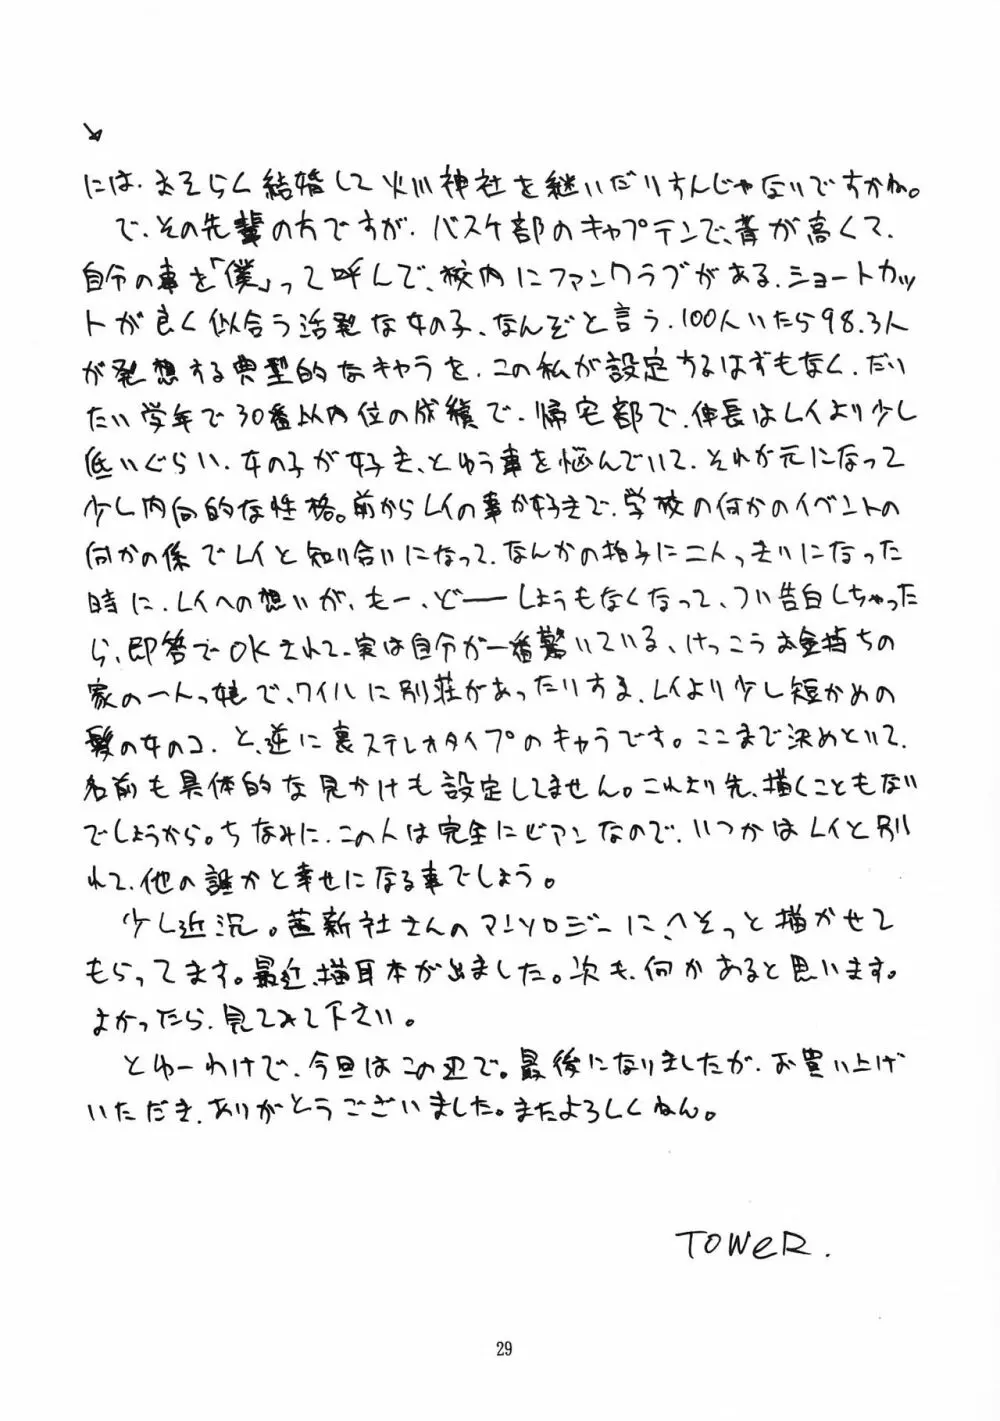 には、おそらく結婚して火川神社を継いだりすんじゃないですかね。
で、その先輩の方ですが、バスケ部のキャプテンで、背が高くて、
自分の事を「僕」って呼んで、校内にファンクラブがある、ショートカッ
トが良く似合う活発な女の子、なんぞと言う、100人いたら98.3人
が発想する典型的なキャラを、この私が設定するはずもなく、だい
たい学年で30番以内位の成績で、帰宅部で、伸長はレイより少し
低いぐらい、女の子が好き、とゆう事を悩んでいて、それが元になって
少し内向的な性格。前からレイの事が好きで、学校の何かのイベントの
何かの係でレイと知り合いになって、なんかの拍子に二人っきりになった
時に、レイへの想いが、もー、どーーしようもなくなって、つい告白しちゃった
ら、即答でOKされて、実は自分が一番驚いている、けっこうお金持ちの
家の一人っ娘で、ワイハに別荘があったりする、レイより少し短かめの
髪の女のコ、と、逆に裏ステレオタイプのキャラです。ここまで決めといて、
名前も具体的な見かけも設定してません。これより先、描くこともない
でしょうから。ちなみに、この人は完全にビアンなので、いつかはレイと別
れて、他の誰かと幸せになる事でしょう。
少し近況。茜新社さんのアンソロジーに、へそっと描かせて
もらってます。最近、猫耳本が出ました。次も、何かあると思います。
よかったら、見てみて下さい。
とゆーわけで、今回はこの辺で。最後になりましたが、お買い上げ
いただき、ありがとうございました。またよろしくねん。
TOWeR.
29